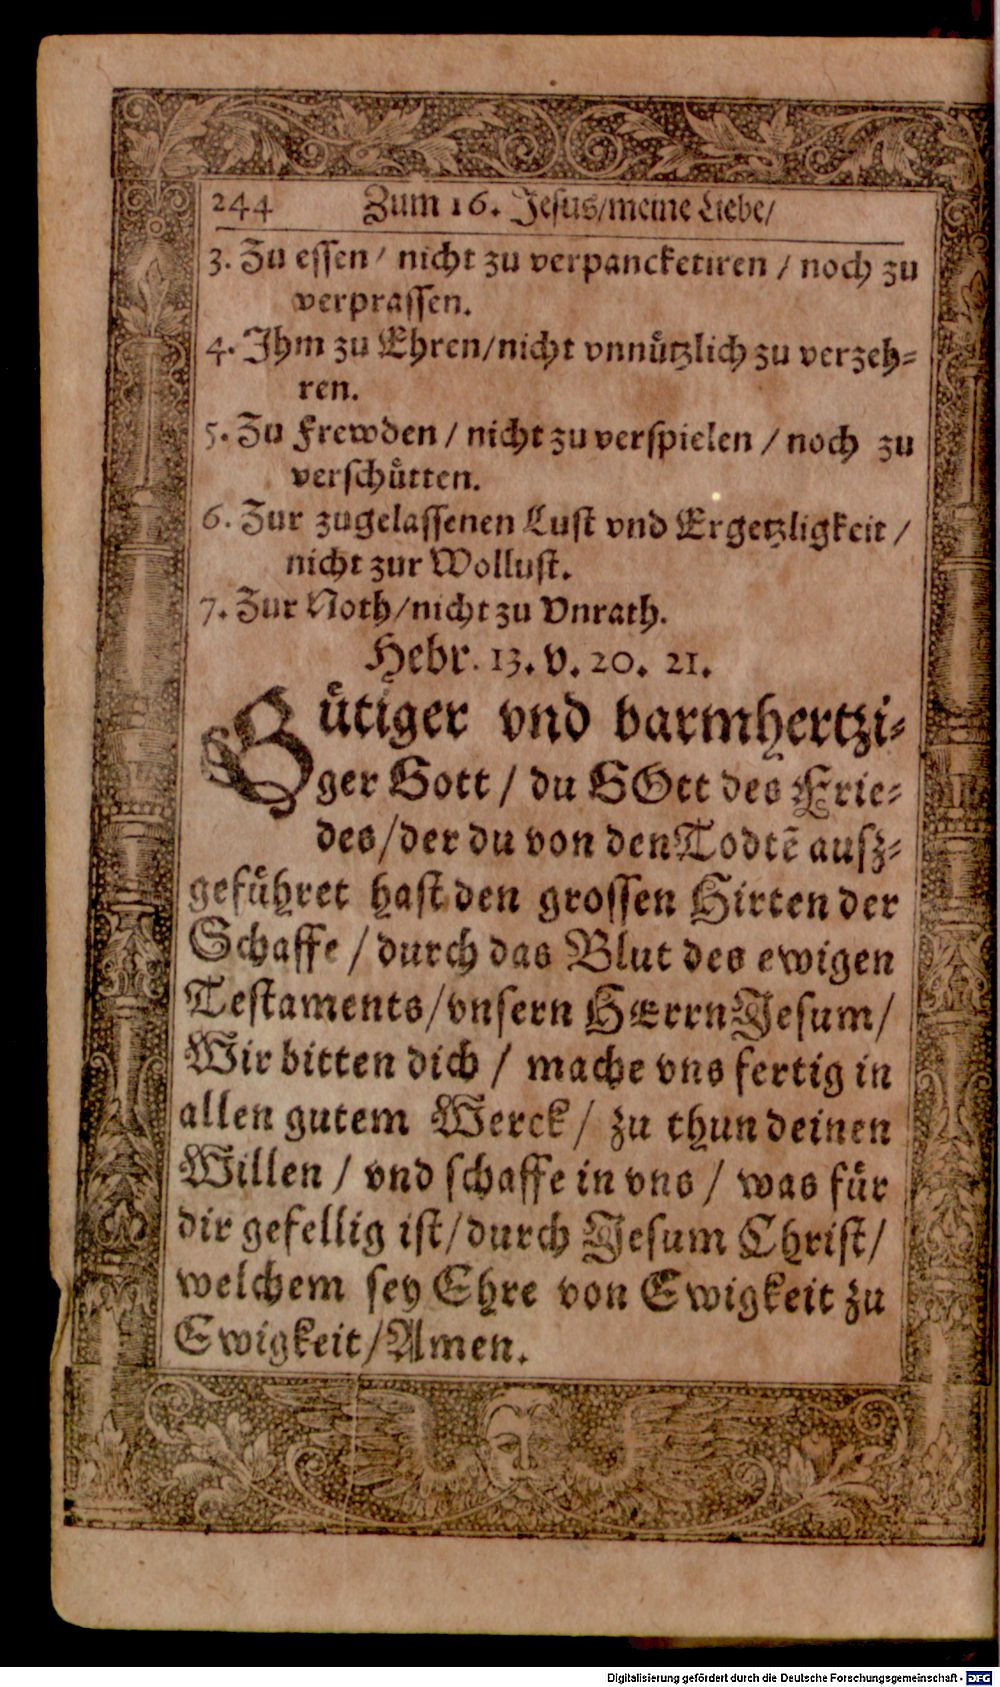 244 Zum 16. Jesus/meine Liebe/
3. Zu essen/ nicht zu verpancketiren / noch zu
verprassen.
4. Ihm zu Ehren/nicht vnnuͤtzlich zu verzeh-
ren.
5. Zu Frewden / nicht zu verspielen / noch zu
verschuͤtten.
6. Zur zugelassenen Lust vnd Ergetzligkeit /
nicht zur Wollust.
7. Zur Noth/nicht zu Vnrath.
Hebr. 13. v. 20. 21.
Guͤtiger vnd barmhertzi-
ger Gott / du GOtt des Frie-
des/der du von den Todtẽ ausz-
gefuͤhret hast den grossen Hirten der
Schaffe / durch das Blut des ewigen
Testaments/vnsern HErrn Jesum/
Wir bitten dich / mache vns fertig in
allen gutem Werck/ zu thun deinen
Willen / vnd schaffe in vns / was fuͤr
dir gefellig ist/durch Jesum Christ/
welchem sey Ehre von Ewigkeit zu
Ewigkeit/Amen.
Digitalisierung gefördert durch die Deutsche Forschungsgemeinschaft - DFG